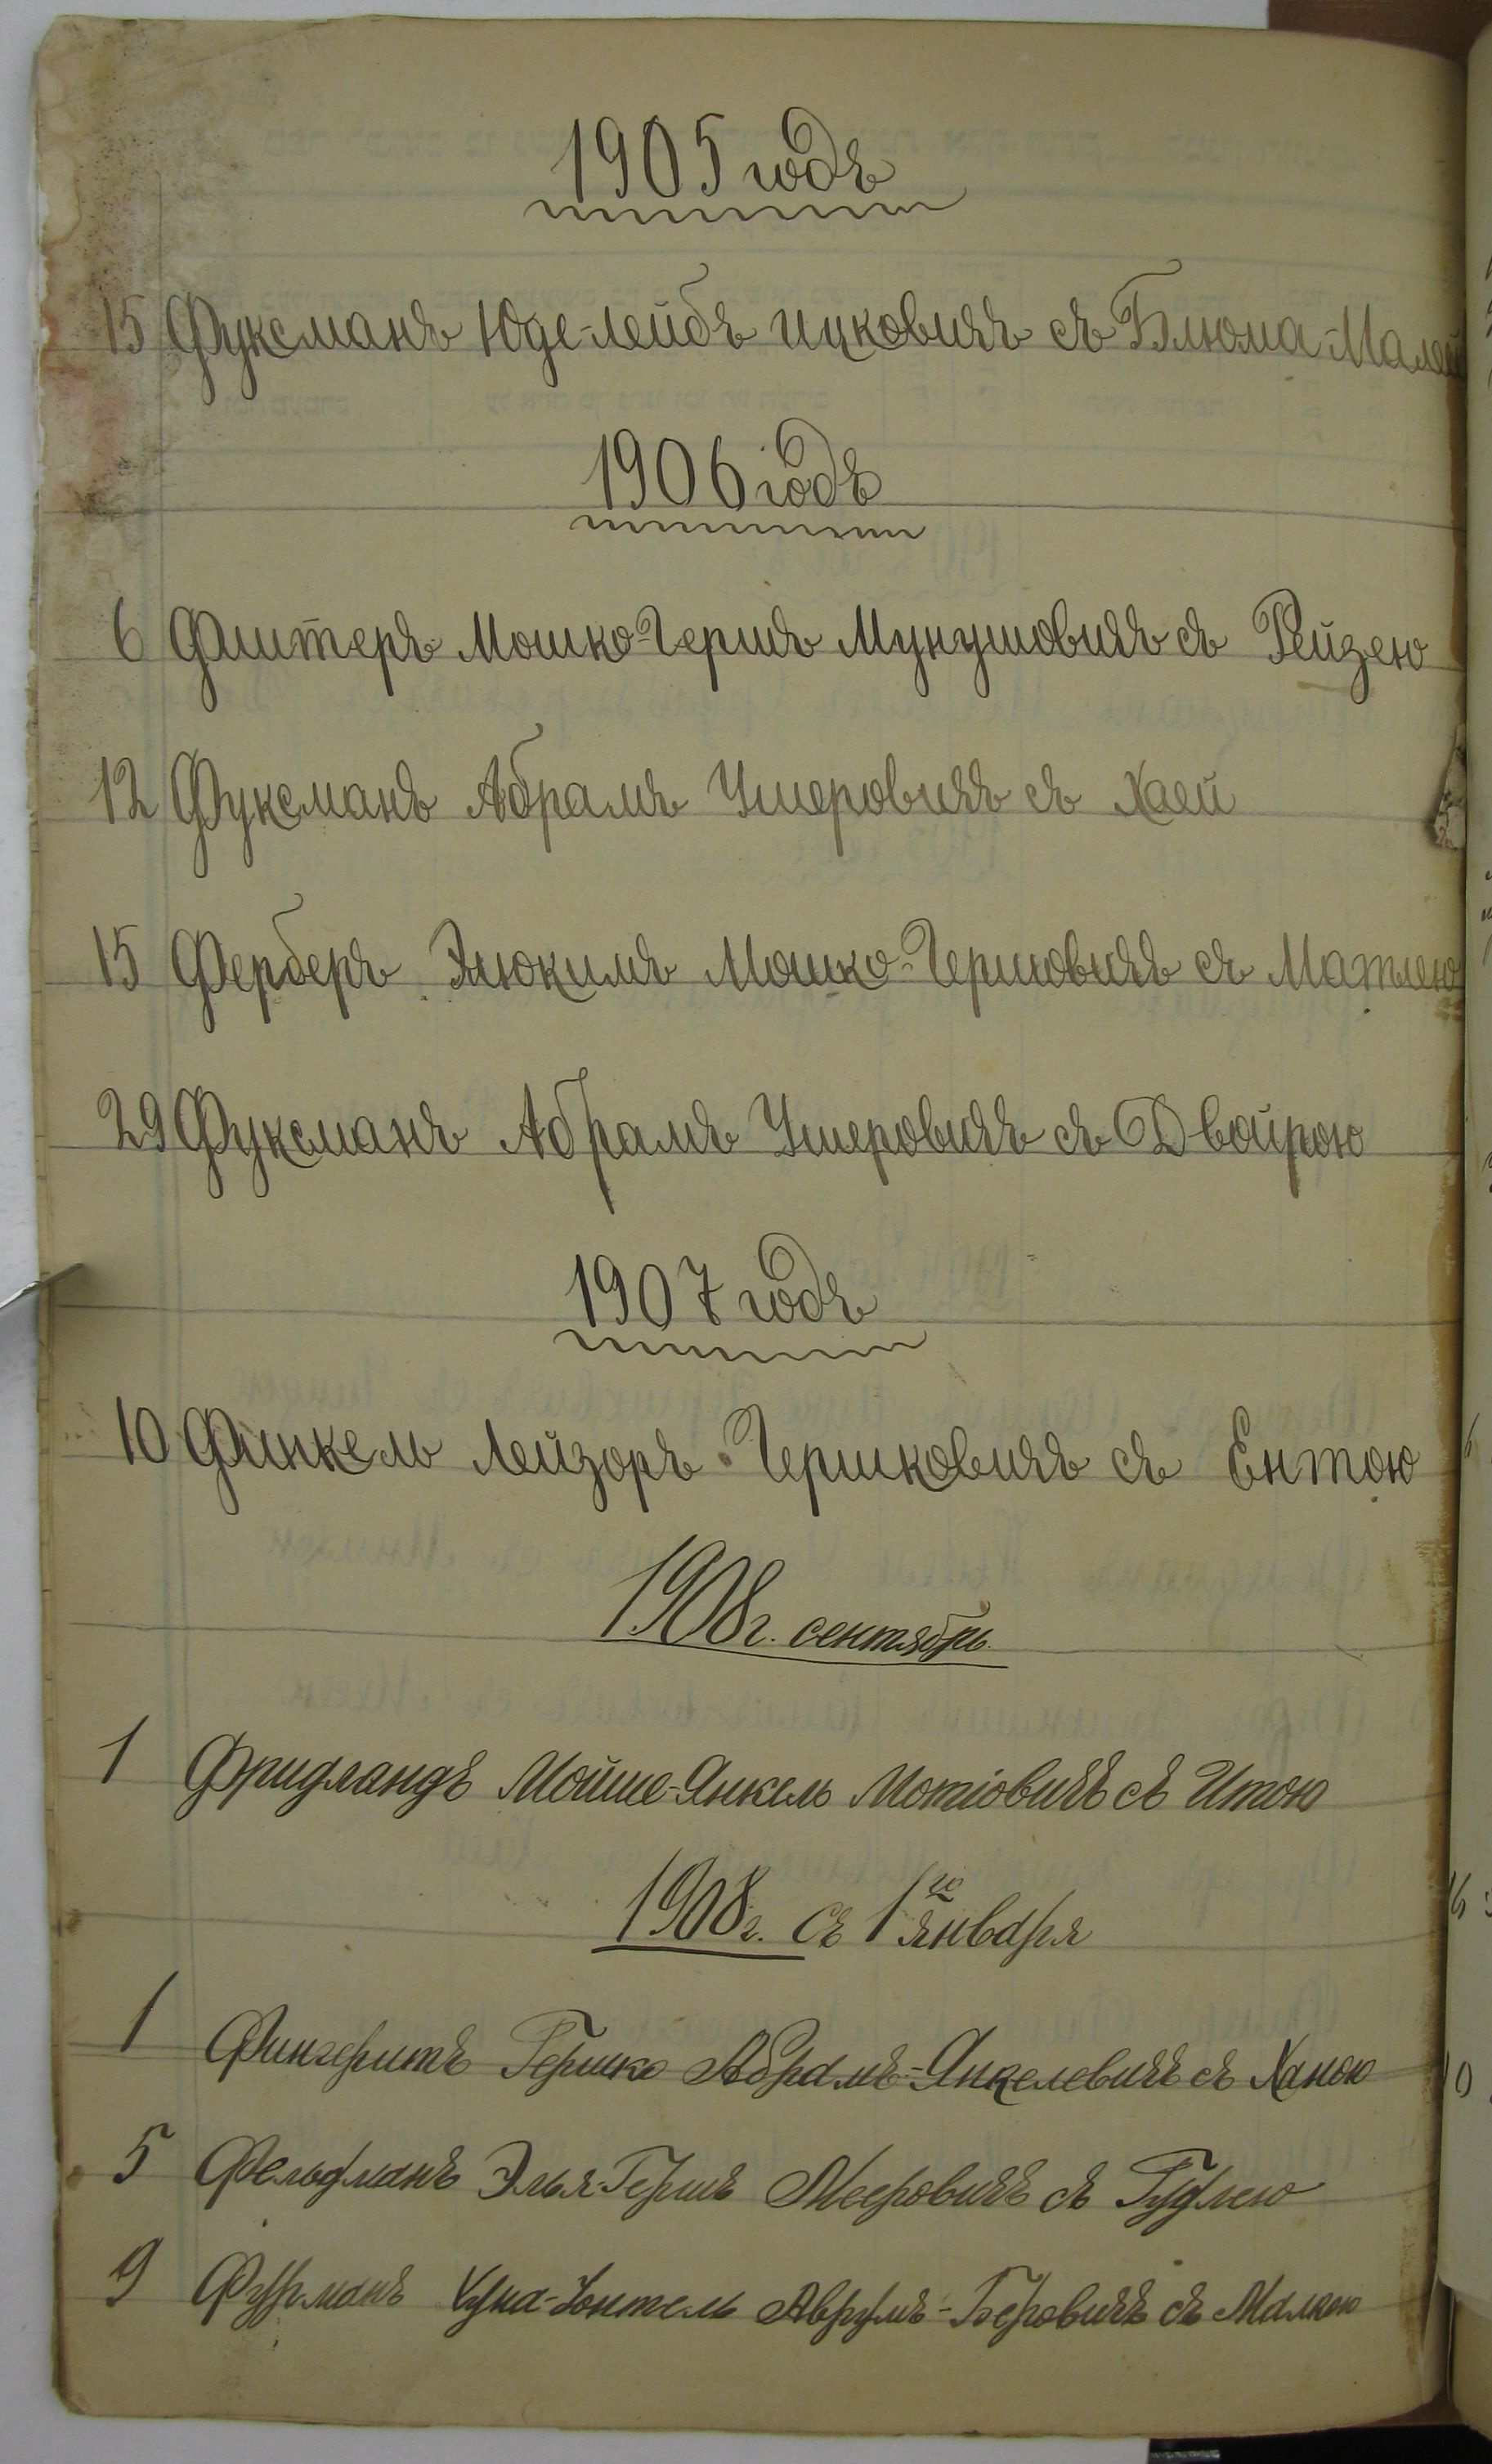 1905 годъ
15 Фуксманъ Юде-Лейбъ Ицковичъ съ Блюма-Малей
1906 годъ
6 Флитеръ Мошко-Гершъ Мунушовичъ съ Рейзею
12 Фуксманъ Абрамъ Ушеровичъ съ Хаей
15 Ферберъ Элюкимъ Мошко-Гершовичъ съ Матлею
29 Фуксманъ Абрамъ Ушеровичъ съ Двойрою
1907 годъ
10 Финкель Лейзоръ Гершковичъ съ Ентою
1908 г. сентябрь.
1 Фридландъ Мойше-Янкель Мотіовичъ съ Итою
1908 г. съ 1го января
1 Фингерутъ Гершко Абрамъ-Янкелевичъ съ Ханою
5 Фельдманъ Элья-Гершъ Мееровичъ съ Гудлею
9 Фурманъ Хуна-Юнтель Аврумъ-Беровичъ съ Малкою